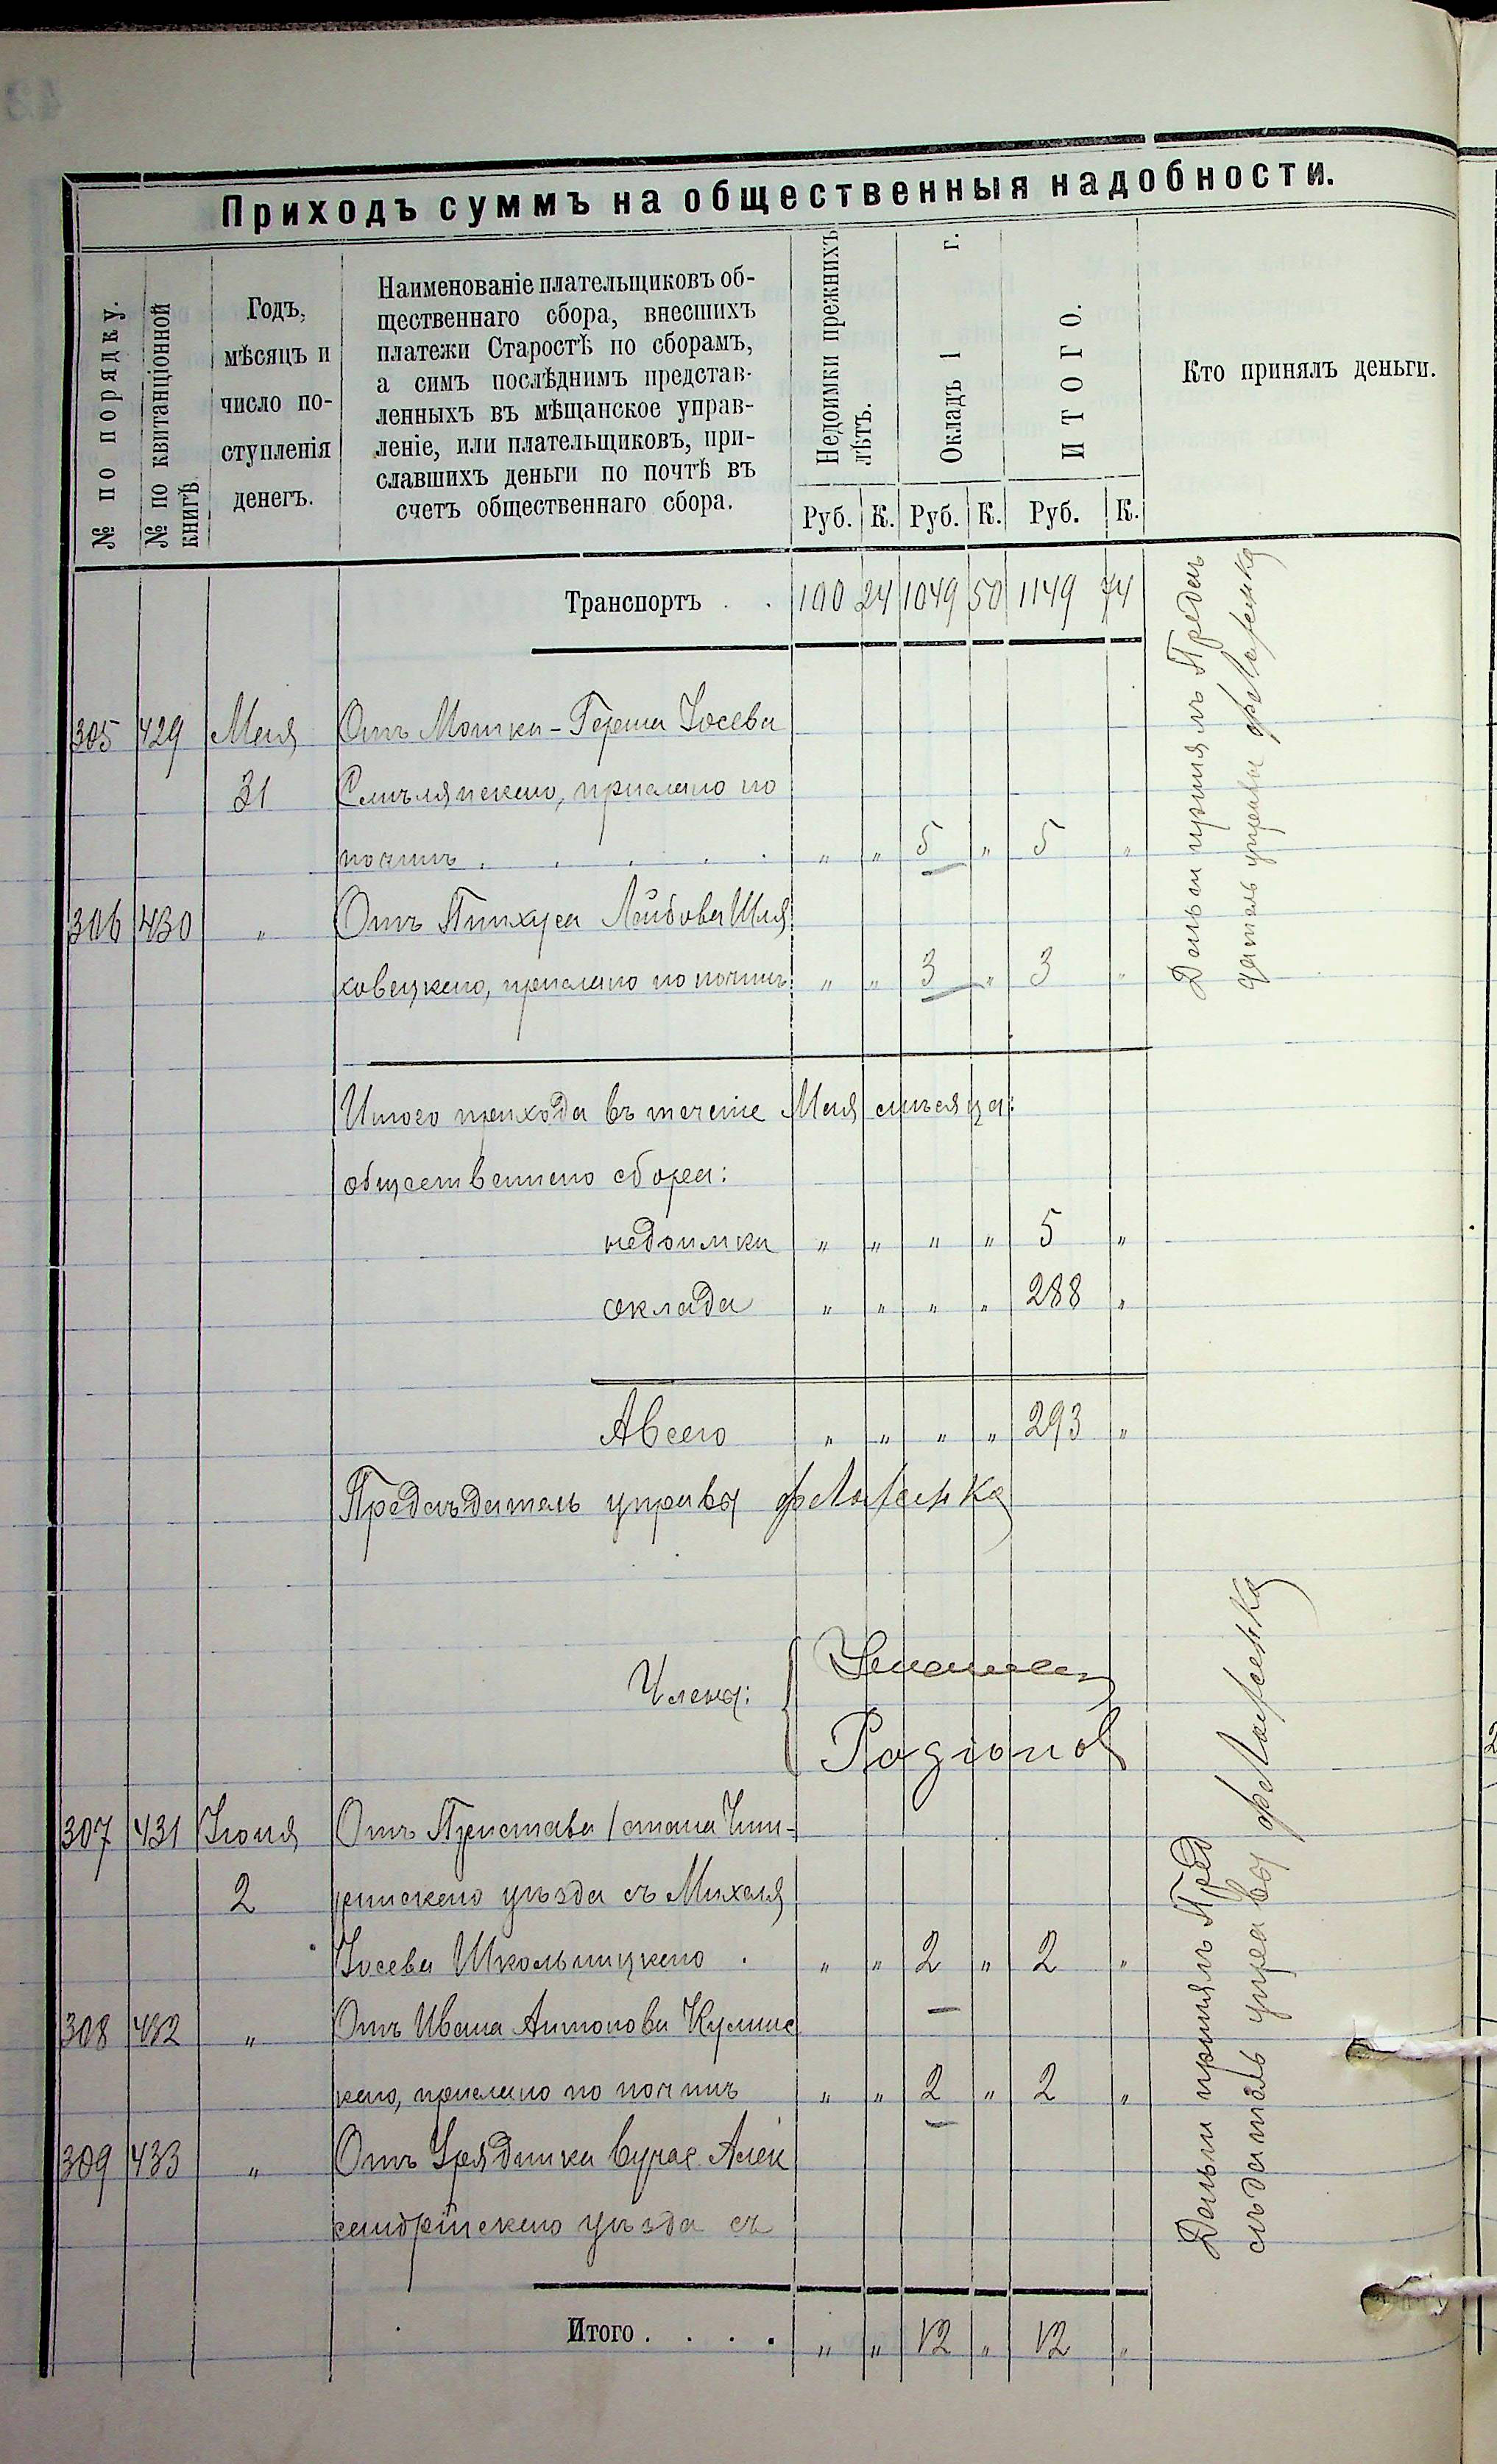 Приходъ суммъ на общественныя надобности.
№ по порядку.
№ по квитанціонной
книгѣ.
Годъ,
мѣсяцъ и
число по-
ступленія
денегъ.
Наименованіе плательщиковъ об-
щественнаго сбора, внесшихъ
платежи Старостѣ по сборамъ,
а симъ послѣднимъ представ-
ленныхъ въ мѣщанское управ-
леніе, или плательщиковъ, при-
славшихъ деньги по почтѣ въ
счетъ общественнаго сбора.
Недоимки прежнихъ
лѣтъ.
Окладъ 1 г.
ИТОГО.
Кто принялъ деньги.
Руб. К. Руб. К. Руб. К.
Транспортъ . . 100 24 1049 50 1149 74
305 429 Мая Отъ Мошка-Герша Іосева
31 Смѣлянскаго, прислано по
почтѣ . . . . . " " 5 " 5 "
306 430 " Отъ Пинхуса Лейбова
ковецкаго, прислано по почтѣ " " 3 " 3 "
Деньги принялъ Предсѣ
датель управы
Итого прихода въ теченіе Мая мѣсяца:
общественнаго сбора:
недоимки " " " " 5 "
оклада " " " " 288 "
А всего " " " " 293 "
Предсѣдатель управы
Члены:
Родіоновъ
307 431 Іюня Отъ Пристава 1 стана Чиги-
2 ринскаго уѣзда съ Михеля
Іосева Школьницкаго . " " 2 " 2 "
308 432 " Отъ Ивана Антонова
каго, прислано по почтѣ " " 2 " 2 "
309 433 " Отъ Урядника 6 участ. Алек
сандрійскаго уѣзда съ
Деньги принялъ Пред
сѣдатель управы
Итого . . . . " " 12 " 12 "